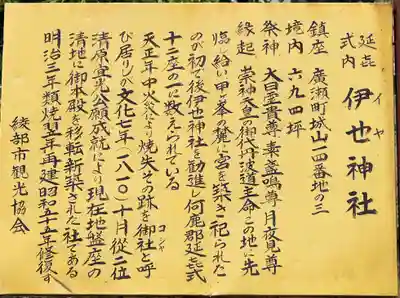 延㐂式内 伊也神社
イヤ
鎮座 廣瀬町城山一四番地の三
境内 六九四坪
祭神 大日霊貴尊 素盞鳴尊 月夜見尊
縁起 崇神天皇の御代丹波道主命この地に先
臨し給い甲ヶ峯の麓に宮を築き祀られた
のが初で後伊也神社を勧進し何鹿郡延㐂式
十二座の一に数えられている
天正年中火災により焼失その跡を御社と呼
コシヤ
び居りしが文化七年(一八一〇)十月従二位
清原宣光公願成就により現在地盤座の
清地に御本殿を移転新築された社である
明治三年類焼翌年再建昭和五十五年修復す
綾部市観光協会